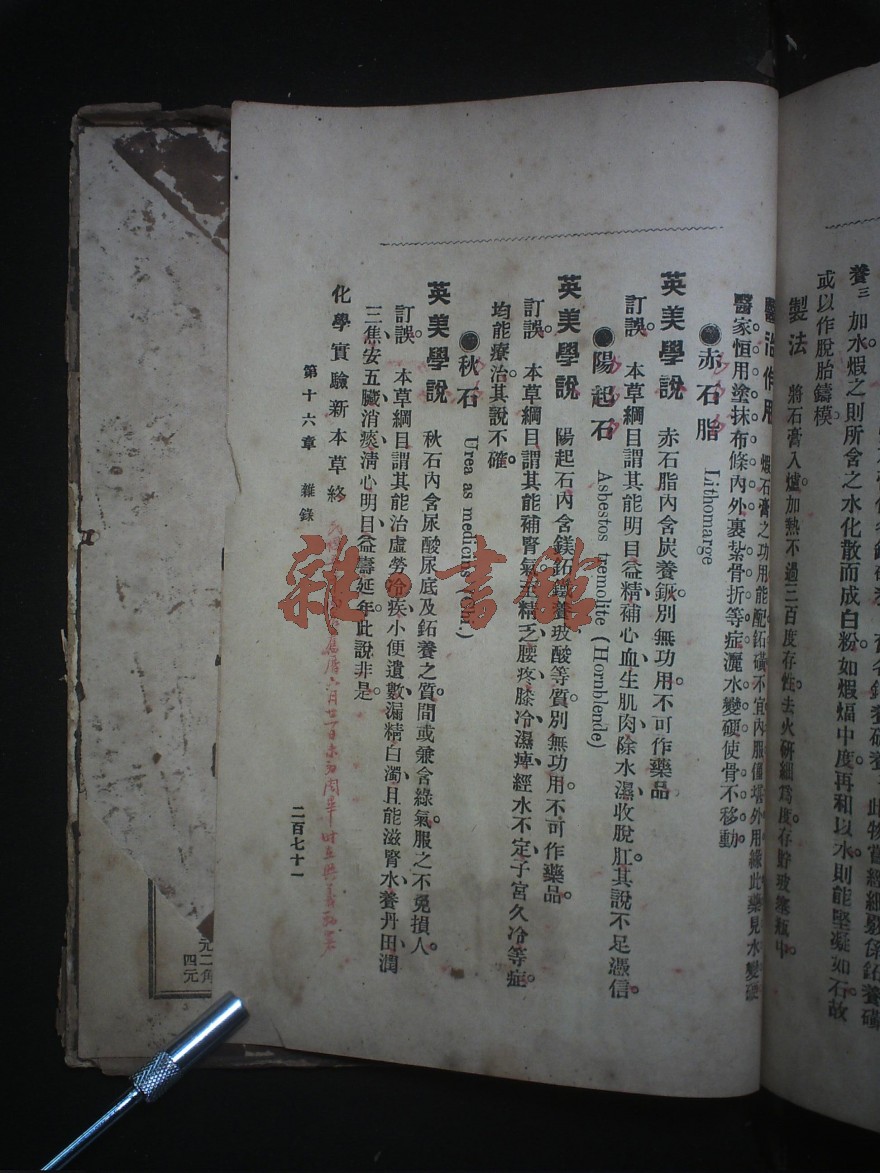 養三　加水煆之則所含之水化散而成白粉如煆煏中度再和以水則能堅凝如石故
或以作脫胎鑄模
製法　將石膏入爐加熱不過三百度存性去火研細爲度存貯玻璃瓶中
醫治作用　煆石膏之功用能配鈣磺不宜內服僅堪外用緣此藥見水變硬
醫家恒用塗抹布條內外裹紮骨折等症灑水變硬使骨不移動
●赤石脂　Lithomarge
英美學說　赤石脂內含炭養鈥別無功用不可作藥品
訂誤　本草綱目謂其能明目益精補心血生肌肉除水濕收脫肛其說不足憑信
●陽起石　Asbestos tremolite (Hornblende)
英美學說　陽起石內含鎂鈣鐵養玻酸等質別無功用不可作藥品
訂誤　本草綱目謂其能補腎氣至精乏腰疼膝冷濕痺經水不定子宮久冷等症
均能療治其說不確
●秋石　Urea as medicine (Chi.)
英美學說　秋石內含尿酸尿底及鈣養之質間或兼含綠氣服之不免損人
訂誤　本草綱目謂其能治虛勞冷疾小便遺數漏精白濁且能滋腎水養丹田潤
三焦安五臟消痰淸心明目益壽延年此說非是
化學實驗新本草終
第十六章　雜錄　二百七十一
雜·書館
元二角
四元